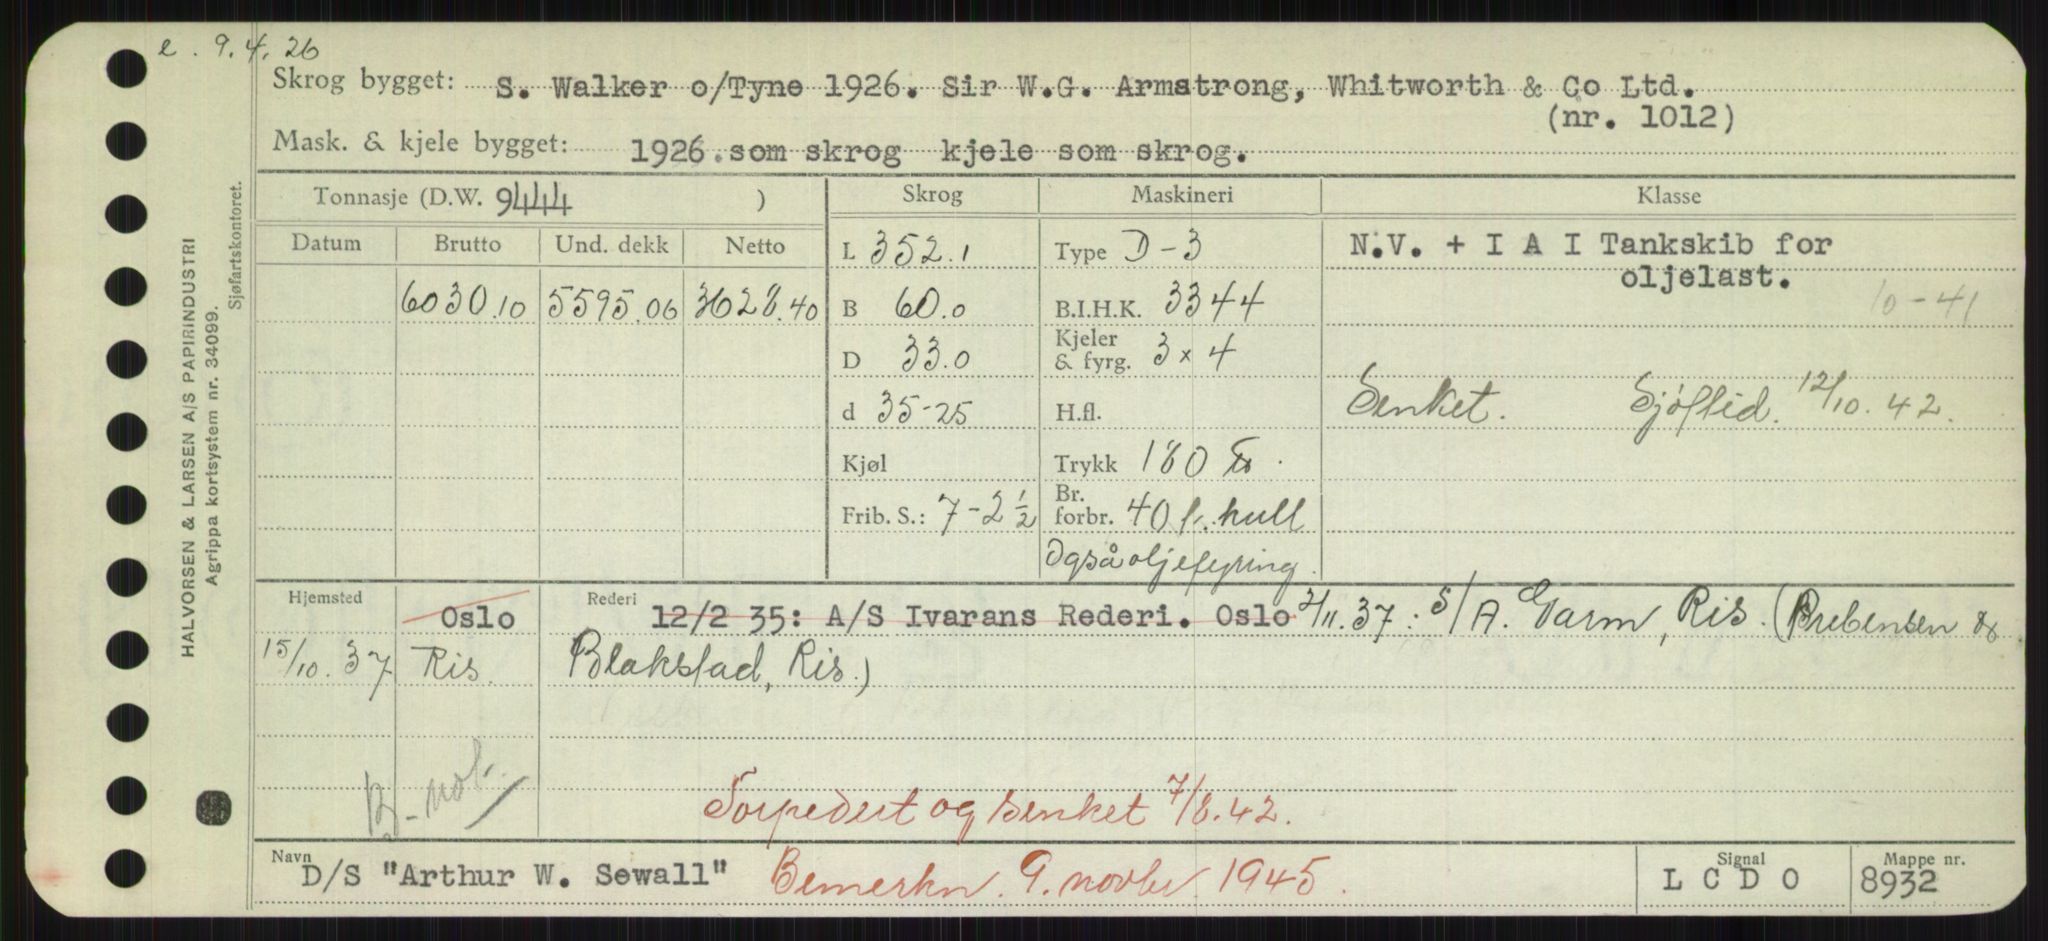 e. 9.4.26
Skrog bygget: S. Walker o/Tyne 1926. Sir W.G. Armstrong, Whitworth & Co Ltd.
(nr. 1012)
Mask. & kjele bygget: 1926 som skrog kjele som skrog.
Tonnasje (D.W. 9444 ) Skrog Maskineri Klasse
Datum Brutto Und. dekk Netto L 352.1 Type D-3 N.V. + I A I Tankskib for
oljelast.
6030.10 5595.06 3628.40 B 60.0 B.I.H.K. 3344 10-41
D 33.0 Kjeler & fyrg. 3 x 4
d 35-25 H.fl. Senket. Sjöftid. 12/10.42.
Kjøl Trykk 180
Frib. S.: 7-2 1/2 Br. forbr. 40 f. hull
Også oljefyring.
Hjemsted Oslo Rederi 12/2 35: A/S Ivarans Rederi. Oslo 2/11.37: S/A. Garm, Ris. (Brebensen &
15/10.37 Ris. Blakstad, Ris.)
B-not.
Torpedert og senket 7/8.42.
Navn D/S "Arthur W. Sewall" Bemerkn. 9. novbr. 1945. Signal L C D O Mappe nr. 8932
HALVORSEN & LARSEN A/S PAPIRINDUSTRI
Agrippa kortsystem nr. 34099.
Sjøfartskontoret.